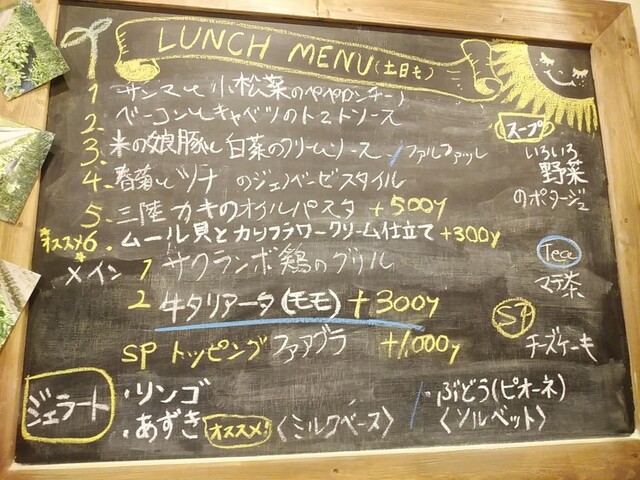 LUNCH MENU(土日も)
1 サンマと小松菜のペペロンチーノ
2. ベーコンとキャベツのトマトソース
3. 米の娘豚と白菜のクリームソース / ファルファッレ
4. 春菊とツナ のジェノベーゼスタイル
5. 三陸カキのオイルパスタ +500y
オススメ 6. ムール貝とカリフラワークリーム仕立て +300y
メイン 1 サクランボ鶏のグリル
2 牛タリアータ(モモ) +300y
SP トッピング フォアグラ +1,000y
ジェラート
・リンゴ
・あずき オススメ! 〈ミルクベース〉
・ぶどう(ピオーネ)
〈ソルベット〉
スープ
いろいろ
野菜
のポタージュ
Tea
マテ茶
SP
チーズケーキ